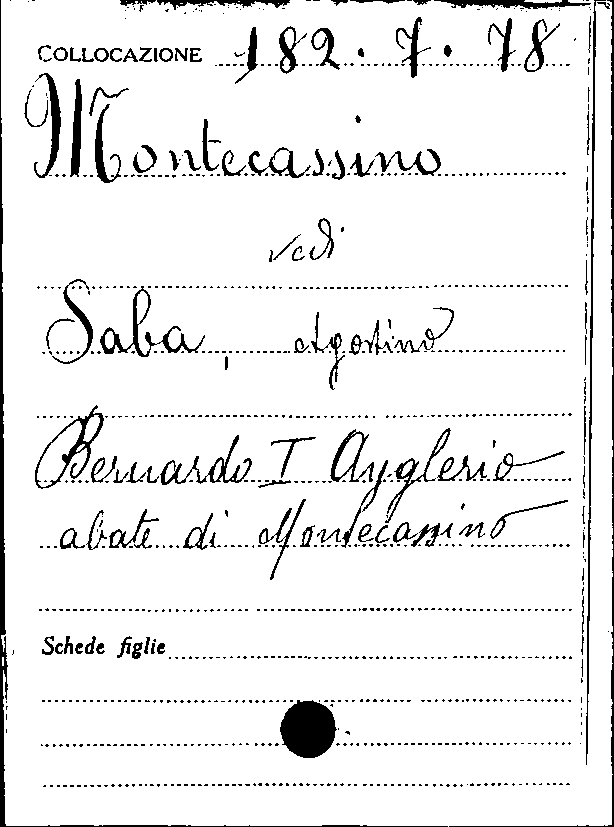 COLLOCAZIONE 182.7.78
Montecassino
vedi
Saba, Agostino
Bernardo I Ayglerio
abate di Montecassino
Schede figlie